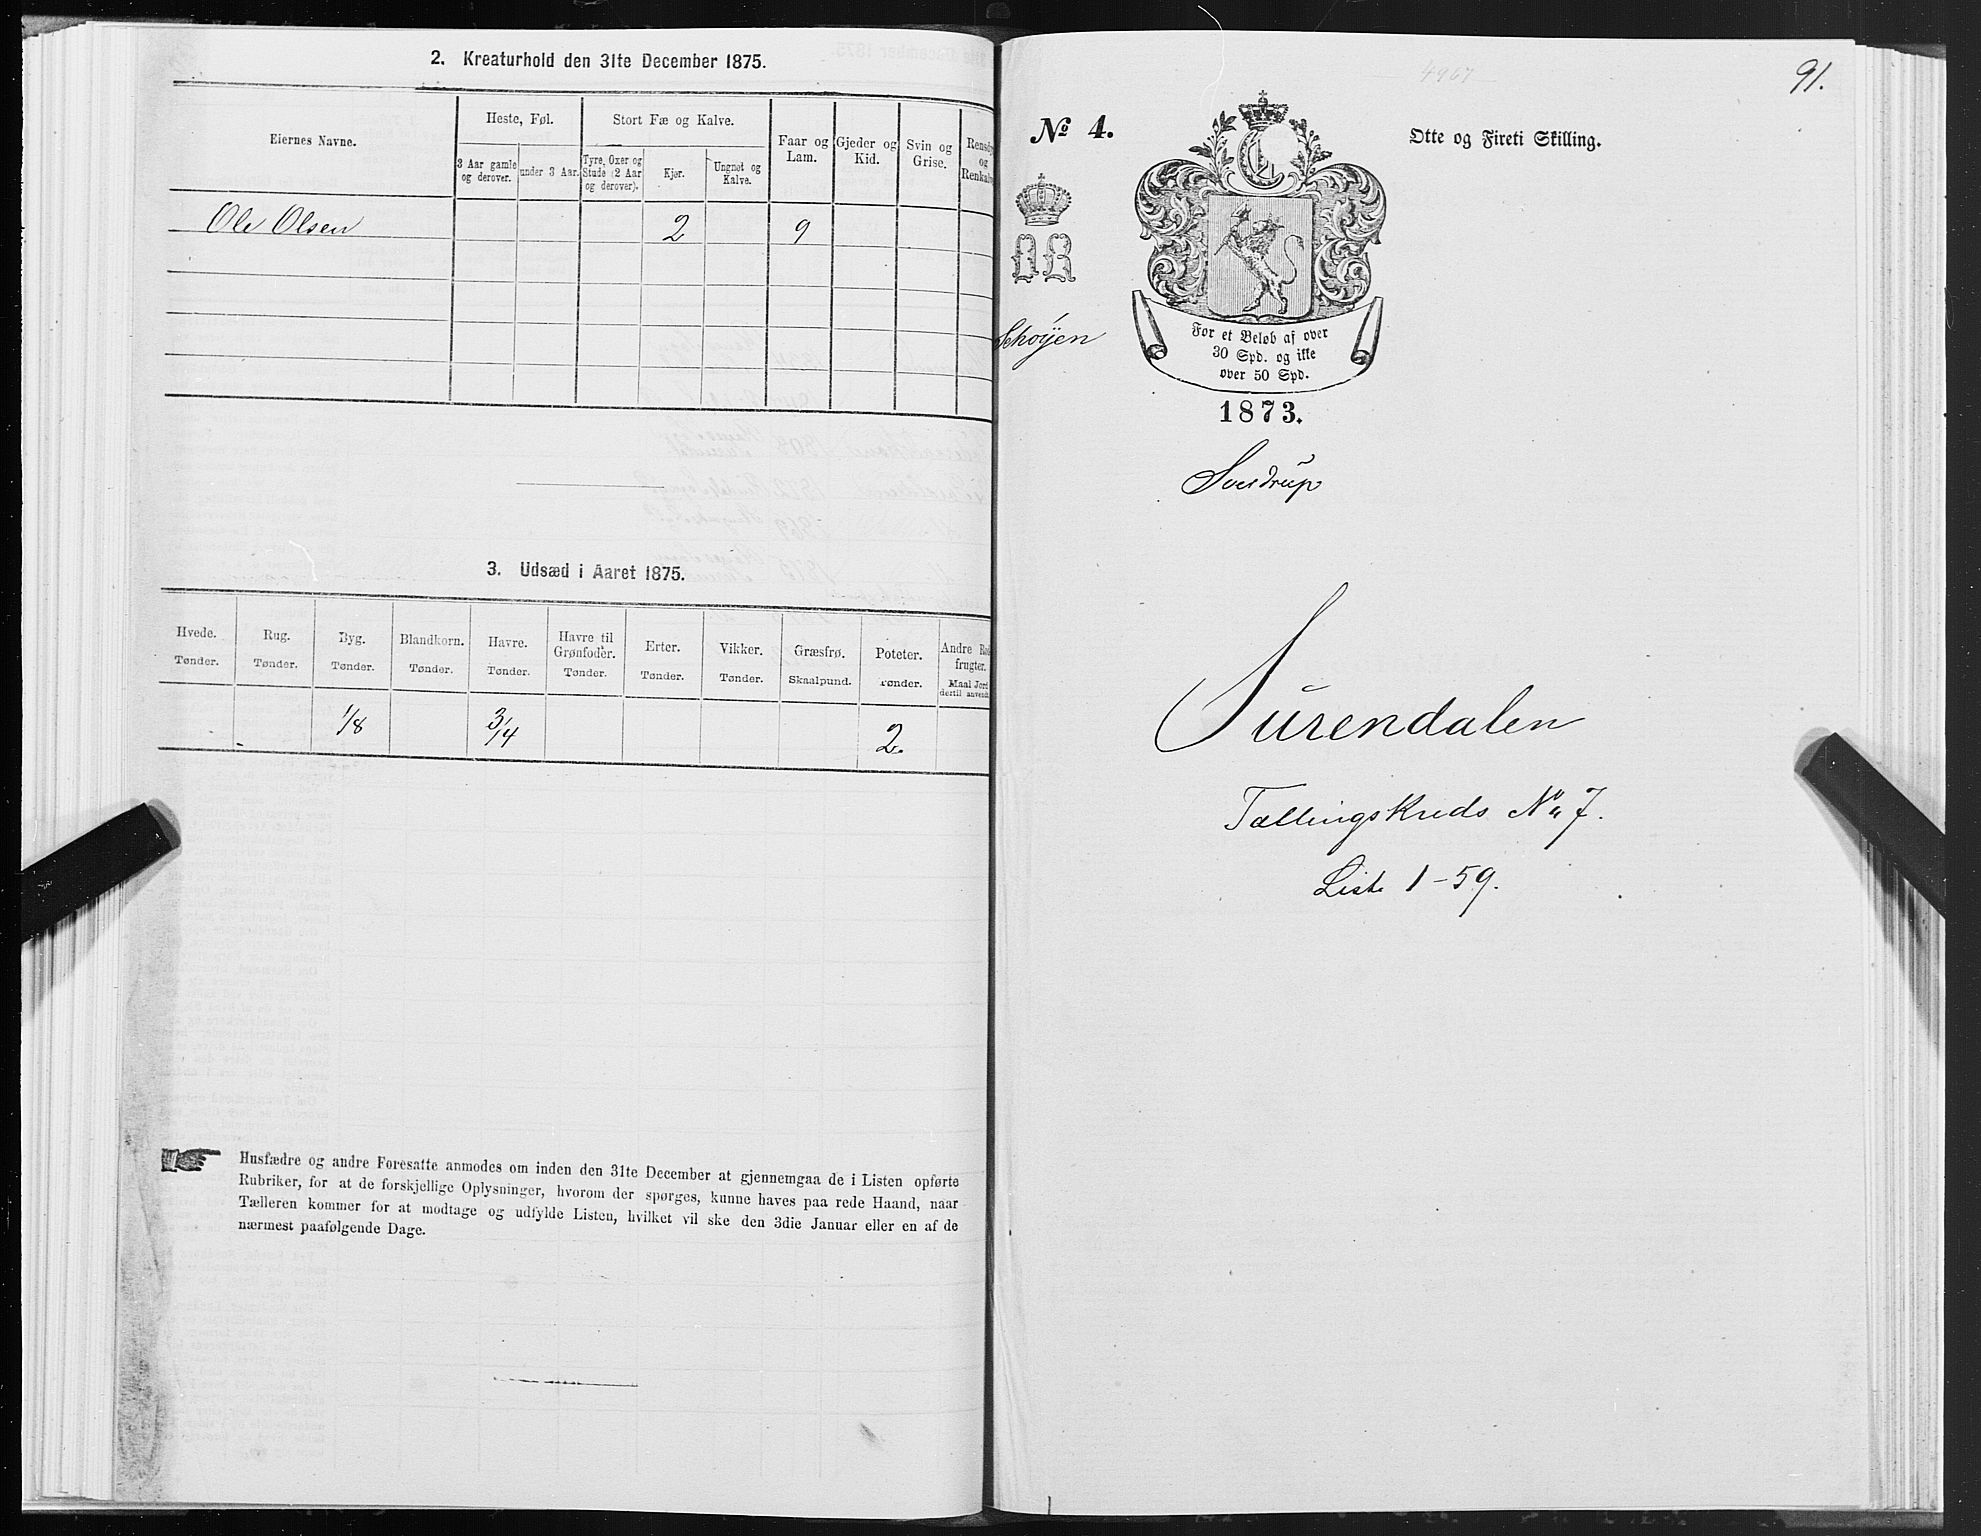 2. Kreaturhold den 31te December 1875.
Eiernes Navne.
Heste, Føl.
Stort Fæ og Kalve.
Faar og Lam.
Gjeder og Kid.
Svin og Grise.
Rensdyr og Renkalve
3 Aar gamle og derover.
under 3 Aar.
Tyre, Oxer og Stude (2 Aar og derover).
Kjør.
Ungnøt og Kalve.
Ole Olsen 2 9
3. Udsæd i Aaret 1875.
Hvede. Rug. Byg. Blandkorn. Havre. Havre til Grønfoder. Erter. Vikker. Græsfrø. Poteter. Andre Rodfrugter.
Tønder. Tønder. Tønder. Tønder. Tønder. Tønder. Tønder. Tønder. Skaalpund. Tønder. Maal Jord dertil anvendt
1/8 3/4 2.
Husfædre og andre Foresatte anmodes om inden den 31te December at gjennemgaa de i Listen opførte
Rubriker, for at de forskjellige Oplysninger, hvorom der spørges, kunne haves paa rede Haand, naar
Tælleren kommer for at modtage og udfylde Listen, hvilket vil ske den 3die Januar eller en af de
nærmest paafølgende Dage.
91.
№ 4.
Otte og Fireti Skilling.
OR
Schøyen
For et Beløb af over
30 Spd. og ikke
over 50 Spd.
1873.
Sverdrup
Surendalen
Tællingskreds No 7.
Liste 1-59.